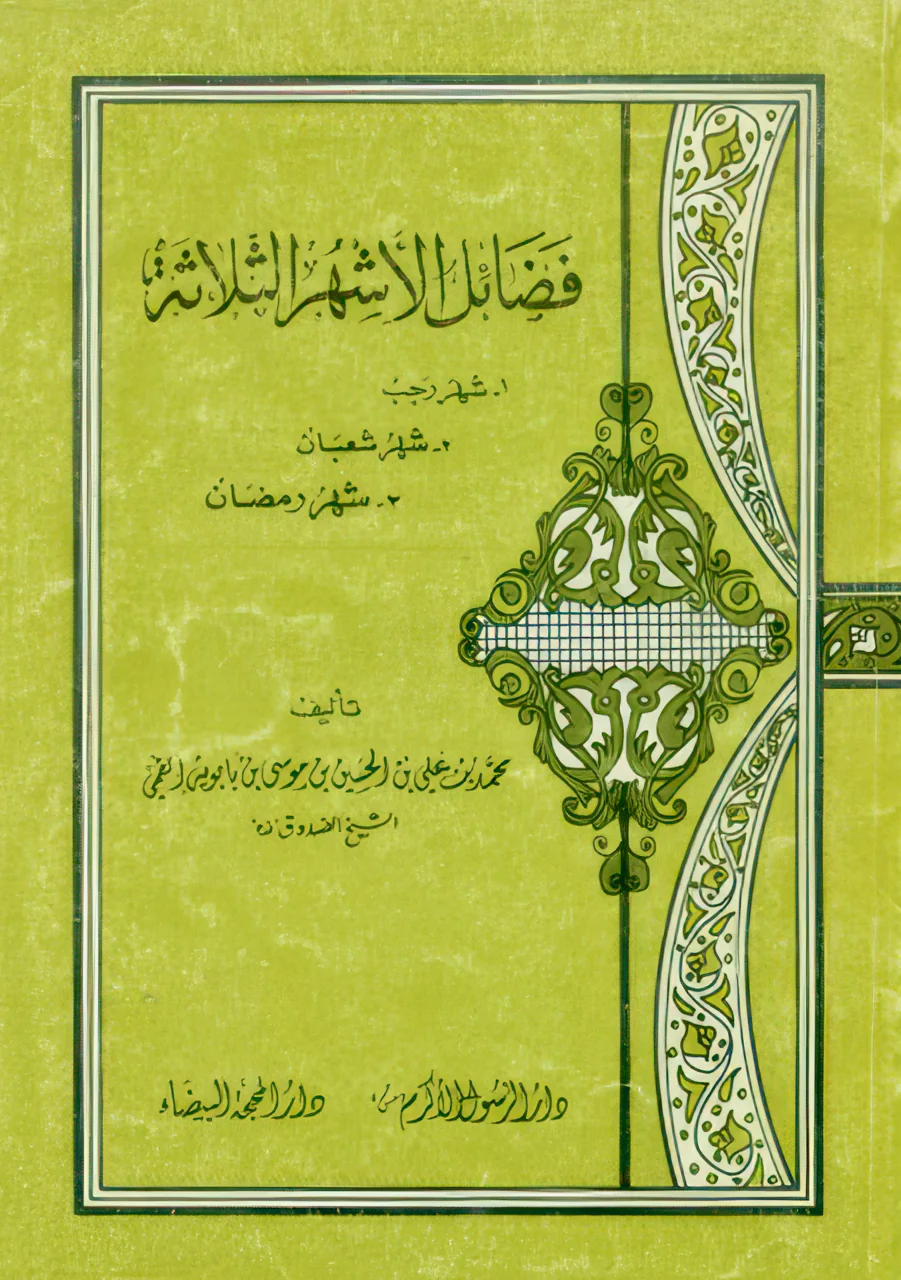 فَضَائِل الأَشْهُر الثَّلاثَة
١ـ شهر رَجَب
٢ـ شهرُ شعبَان
٣ـ شهرُ رمضَان
تأليف
محمّد بن علي بن الحسَين بن موسى بن بابويه القمي
الشيخ الصدوق ره
دار الرسُول الأكرم ص دارُ المحجة البيضَاء